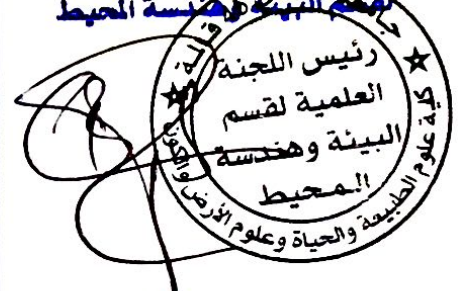 لقسم البيئة وهندسة المحيط
رئيس اللجنة
العلمية لقسم
البيئة وهندسة
المحيط
كلية علوم الطبيعة والحياة وعلوم الأرض والكون